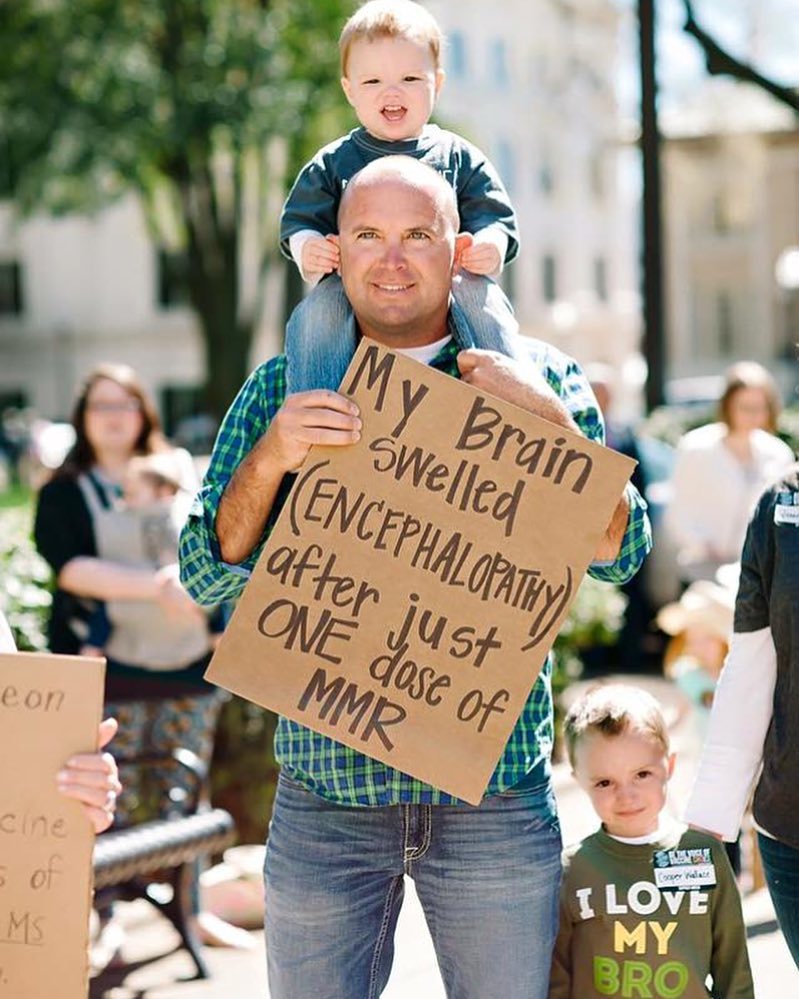 My Brain
swelled
(ENCEPHALOPATHY)
after just
ONE dose of
MMR
eon
cine
s of
MS
BE THE VOICE OF
Cooper Wallace
I LOVE
MY
BRO